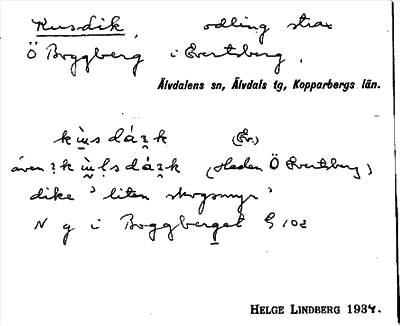 Rusdik, odling strax
Ö Boggberg i Evertsberg.
Älvdalens sn, Älvdals tg, Kopparbergs län.
(Ev.)
även (Heden Ö Evertsberg)
dike ' liten skogsmyr '
N g i Boggberget G 102
HELGE LINDBERG 1934.